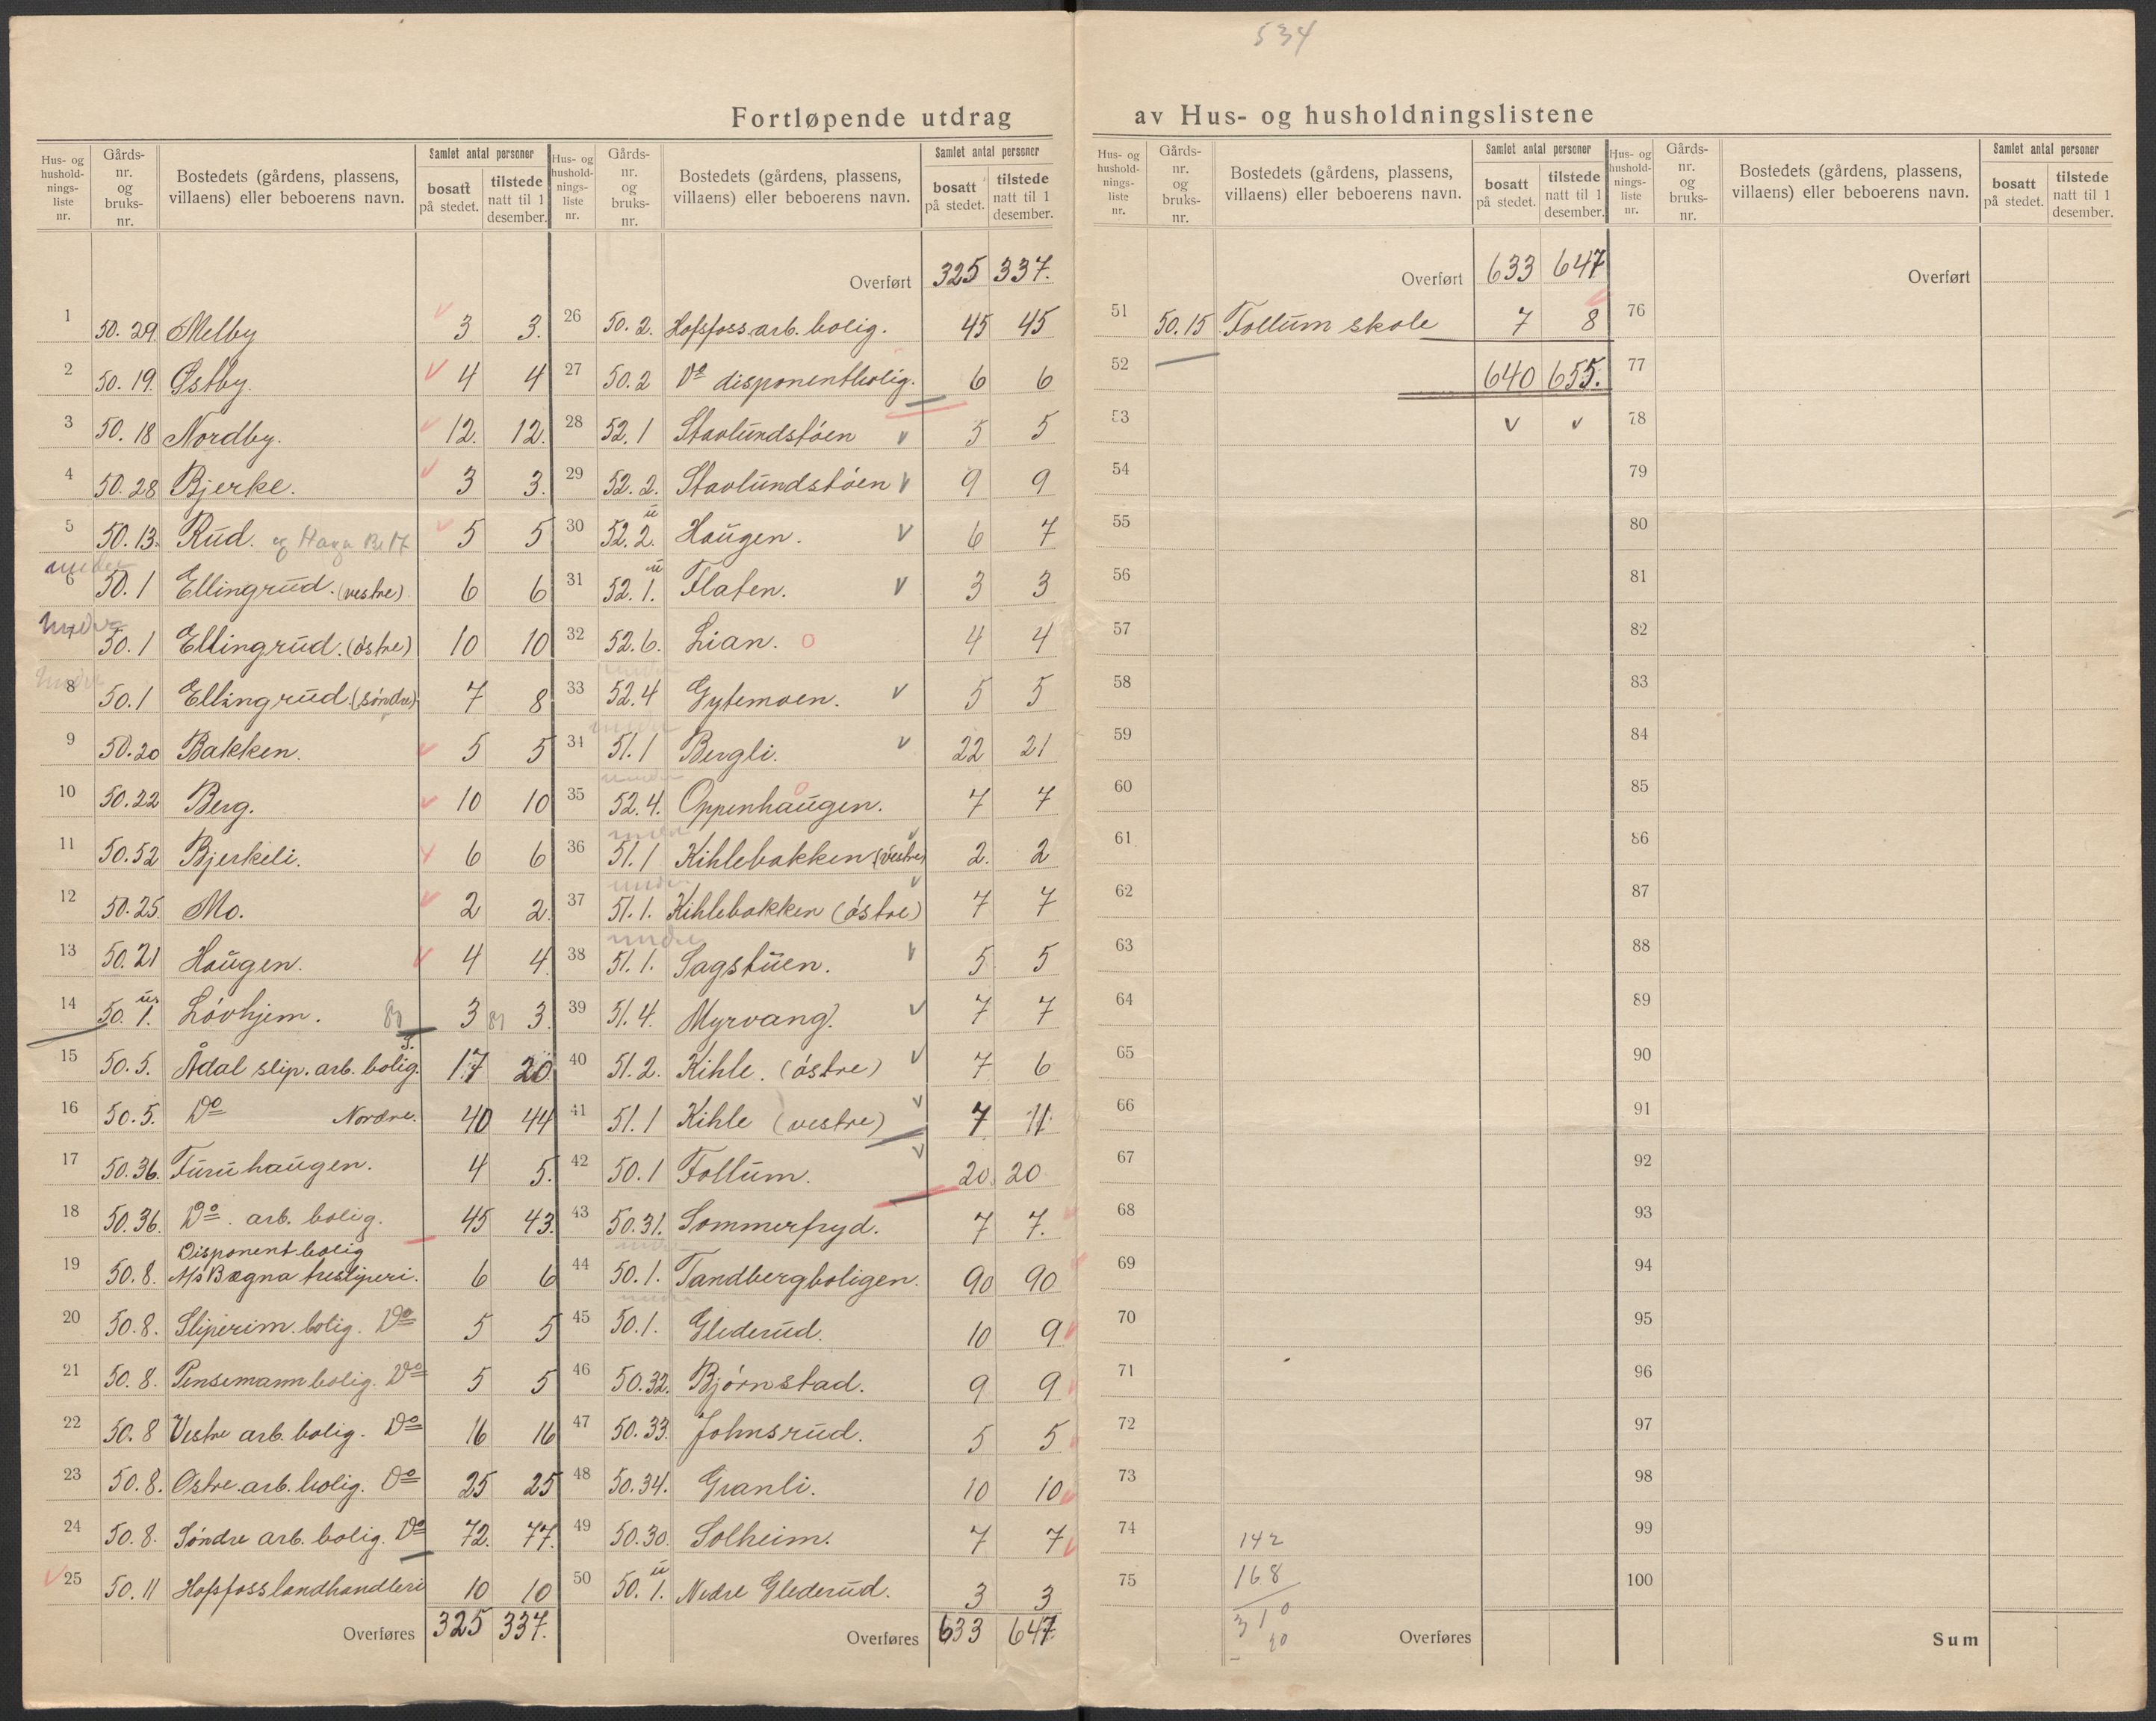 534
Fortløpende utdrag av Hus- og husholdningslistene
Hus- og husholdnings-liste nr. | Gårds-nr. og bruks-nr. | Bostedets (gårdens, plassens, villaens) eller beboerens navn. | Samlet antal personer | bosatt på stedet. | tilstede natt til 1 desember.
1 50.29. Melby 3 3.
2 50.19. Østby. 4 4
3 50.18 Nordby. 12. 12.
4 50.28 Bjerke. 3 3.
5 50.13. Rud. og Haga 5 5
6 under 50.1 Ellingrud. (vestre) 6 6
7 under 50.1 Ellingrud. (østre) 10 10
8 under 50.1 Ellingrud. (søndre) 7 8
9 50.20 Bakken. 5 5
10 50.22 Berg. 10 10
11 50.52 Bjerkeli. 6 6
12 50.25. Mo. 2 2.
13 50.21 Haugen. 4 4
14 50.1. Løvhjem. 3 3.
15 50.5. Ådal slip. arb. bolig. S. 17 20
16 50.5. Do Nordre. 40 44
17 50.36. Furuhaugen. 4 5.
18 50.36. Do. arb. bolig. 45 43.
19 50.8. Disponentbolig
A/s Bægna tresliperi. 6 6
20 50.8. Sliperim. bolig. Do 5 5
21 50.8. Pensemannbolig. Do 5 5
22 50.8 Vestre arb. bolig. Do 16 16
23 50.8. Østre arb. bolig. Do 25 25
24 50.8. Søndre arb. bolig. Do 72. 77.
25 50.11 Hofsfoss landhandleri 10 10
Overføres 325 337.
Hus- og husholdnings-liste nr. | Gårds-nr. og bruks-nr. | Bostedets (gårdens, plassens, villaens) eller beboerens navn. | Samlet antal personer | bosatt på stedet. | tilstede natt til 1 desember.
Overført 325 337.
26 50.2. Hofsfoss arb. bolig. 45 45
27 50.2 Do disponentbolig. 6 6
28 52.1 Stavlundstøen 5 5
29 52.2. Stavlundstøen 9 9
30 52.2. u Haugen. 6 7
31 52.1. u Flaten. 3 3
32 52.6. Lian. 4 4
33 under 52.4 Gytemoen. 5 5
34 under 51.1 Bergli. 22 21
35 under 52.4. Oppenhaugen. 7 7
36 under 51.1 Kihlebakken (vestre) 2. 2
37 under 51.1. Kihlebakken (østre) 7 7
38 under 51.1. Sagstuen. 5 5
39 51.4. Myrvang. 7 7
40 51.2. Kihle. (østre) 7 6
41 51.1 Kihle (vestre) 7 11.
42 50.1 Follum. 20. 20
43 50.31. Sommerfryd. 7 7.
44 under 50.1. Tandbergboligen. 90 90
45 under 50.1. Glederud. 10 9
46 50.32. Bjørnstad. 9 9
47 50.33. Johnsrud. 5 5
48 50.34. Granli. 10 10
49 50.30. Solheim. 7 7
50 50.1. u Nedre Glederud. 3 3
Overføres 633 647.
Hus- og husholdnings-liste nr. | Gårds-nr. og bruks-nr. | Bostedets (gårdens, plassens, villaens) eller beboerens navn. | Samlet antal personer | bosatt på stedet. | tilstede natt til 1 desember.
Overført 633 647
51 50.15. Follum skole 7 8
52 640 655.
53
54
55
56
57
58
59
60
61
62
63
64
65
66
67
68
69
70
71
72
73
74 142
75 168
310
Overføres
Hus- og husholdnings-liste nr. | Gårds-nr. og bruks-nr. | Bostedets (gårdens, plassens, villaens) eller beboerens navn. | Samlet antal personer | bosatt på stedet. | tilstede natt til 1 desember.
Overført
76
77
78
79
80
81
82
83
84
85
86
87
88
89
90
91
92
93
94
95
96
97
98
99
100
Sum